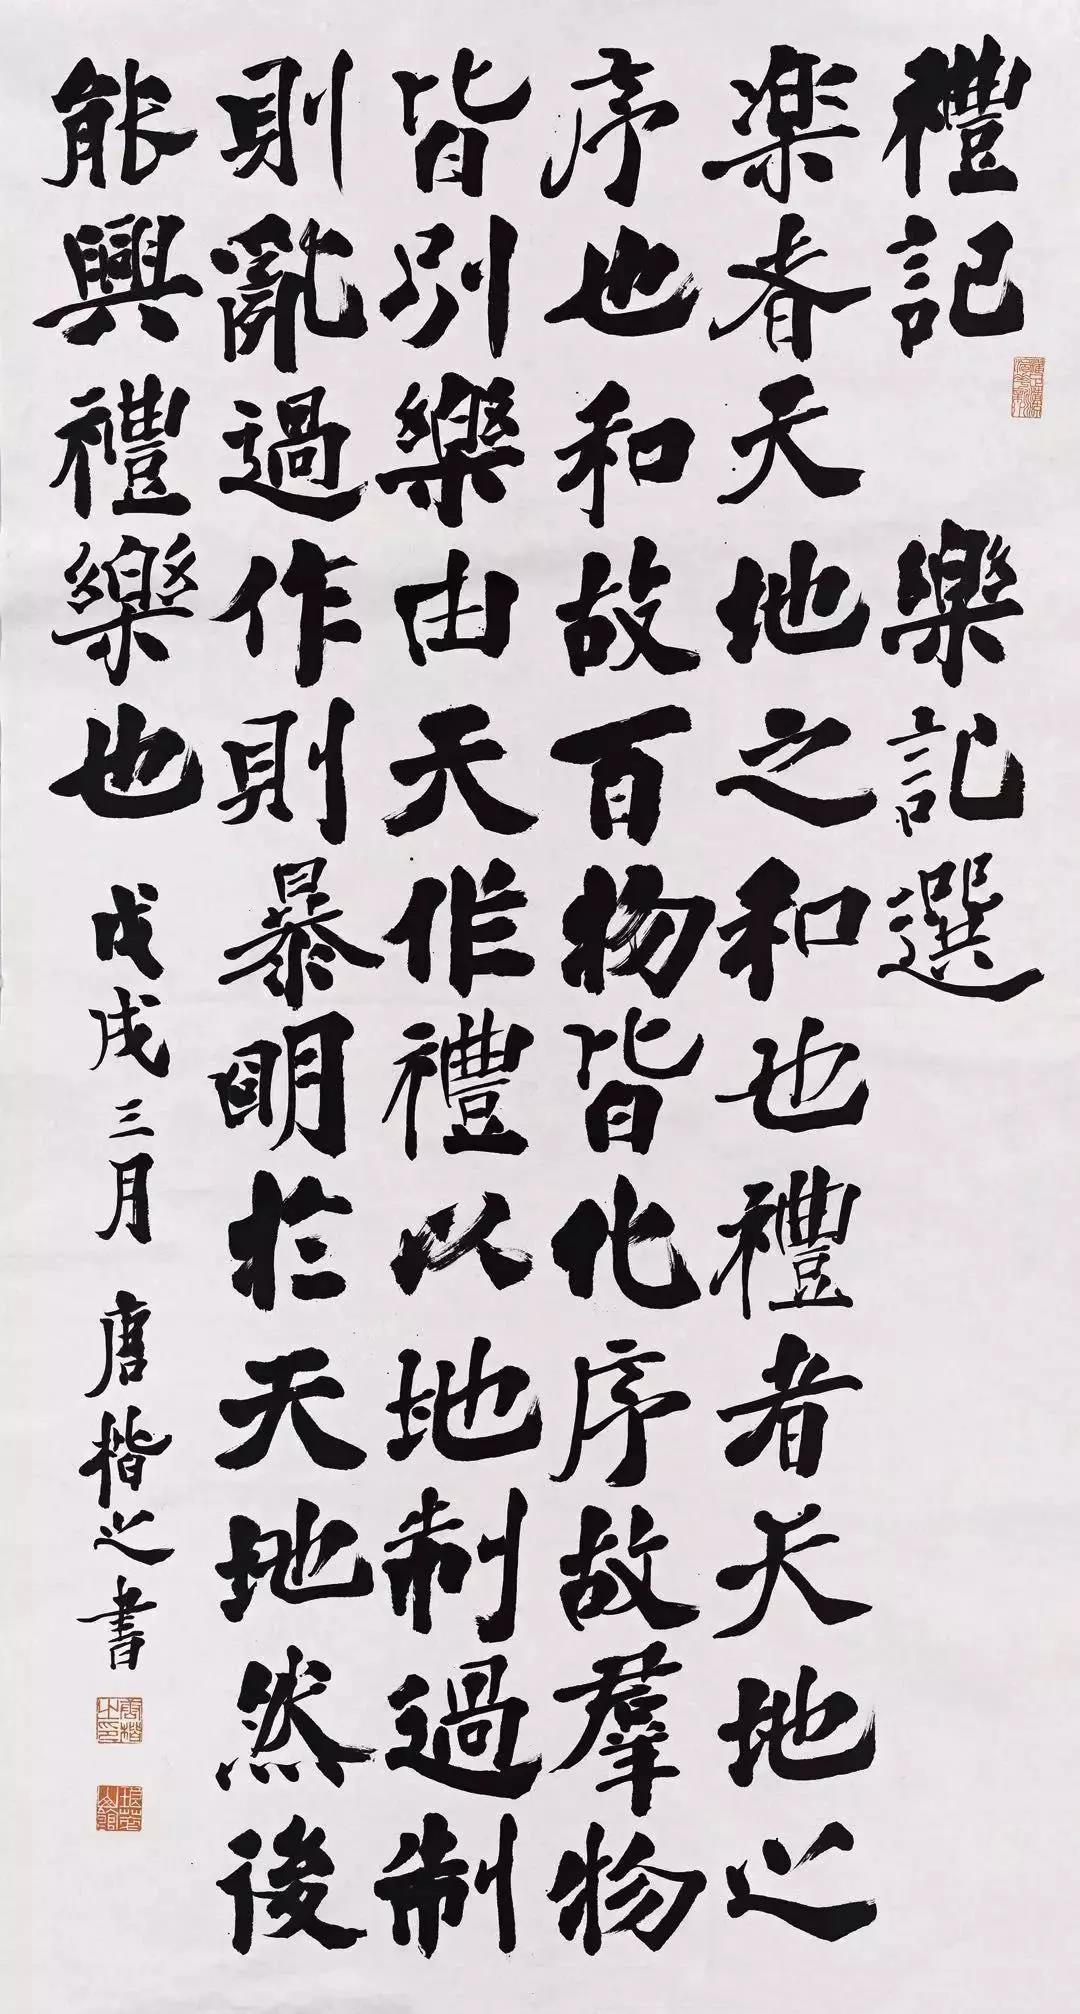 禮記 樂記選
楽者天地之和也禮者天地之
序也和故百物皆化序故羣物
皆別樂由天作禮以地制過制
則亂過作則暴明於天地然後
能興禮樂也 戊戌三月 唐楷之書
唐楷之印